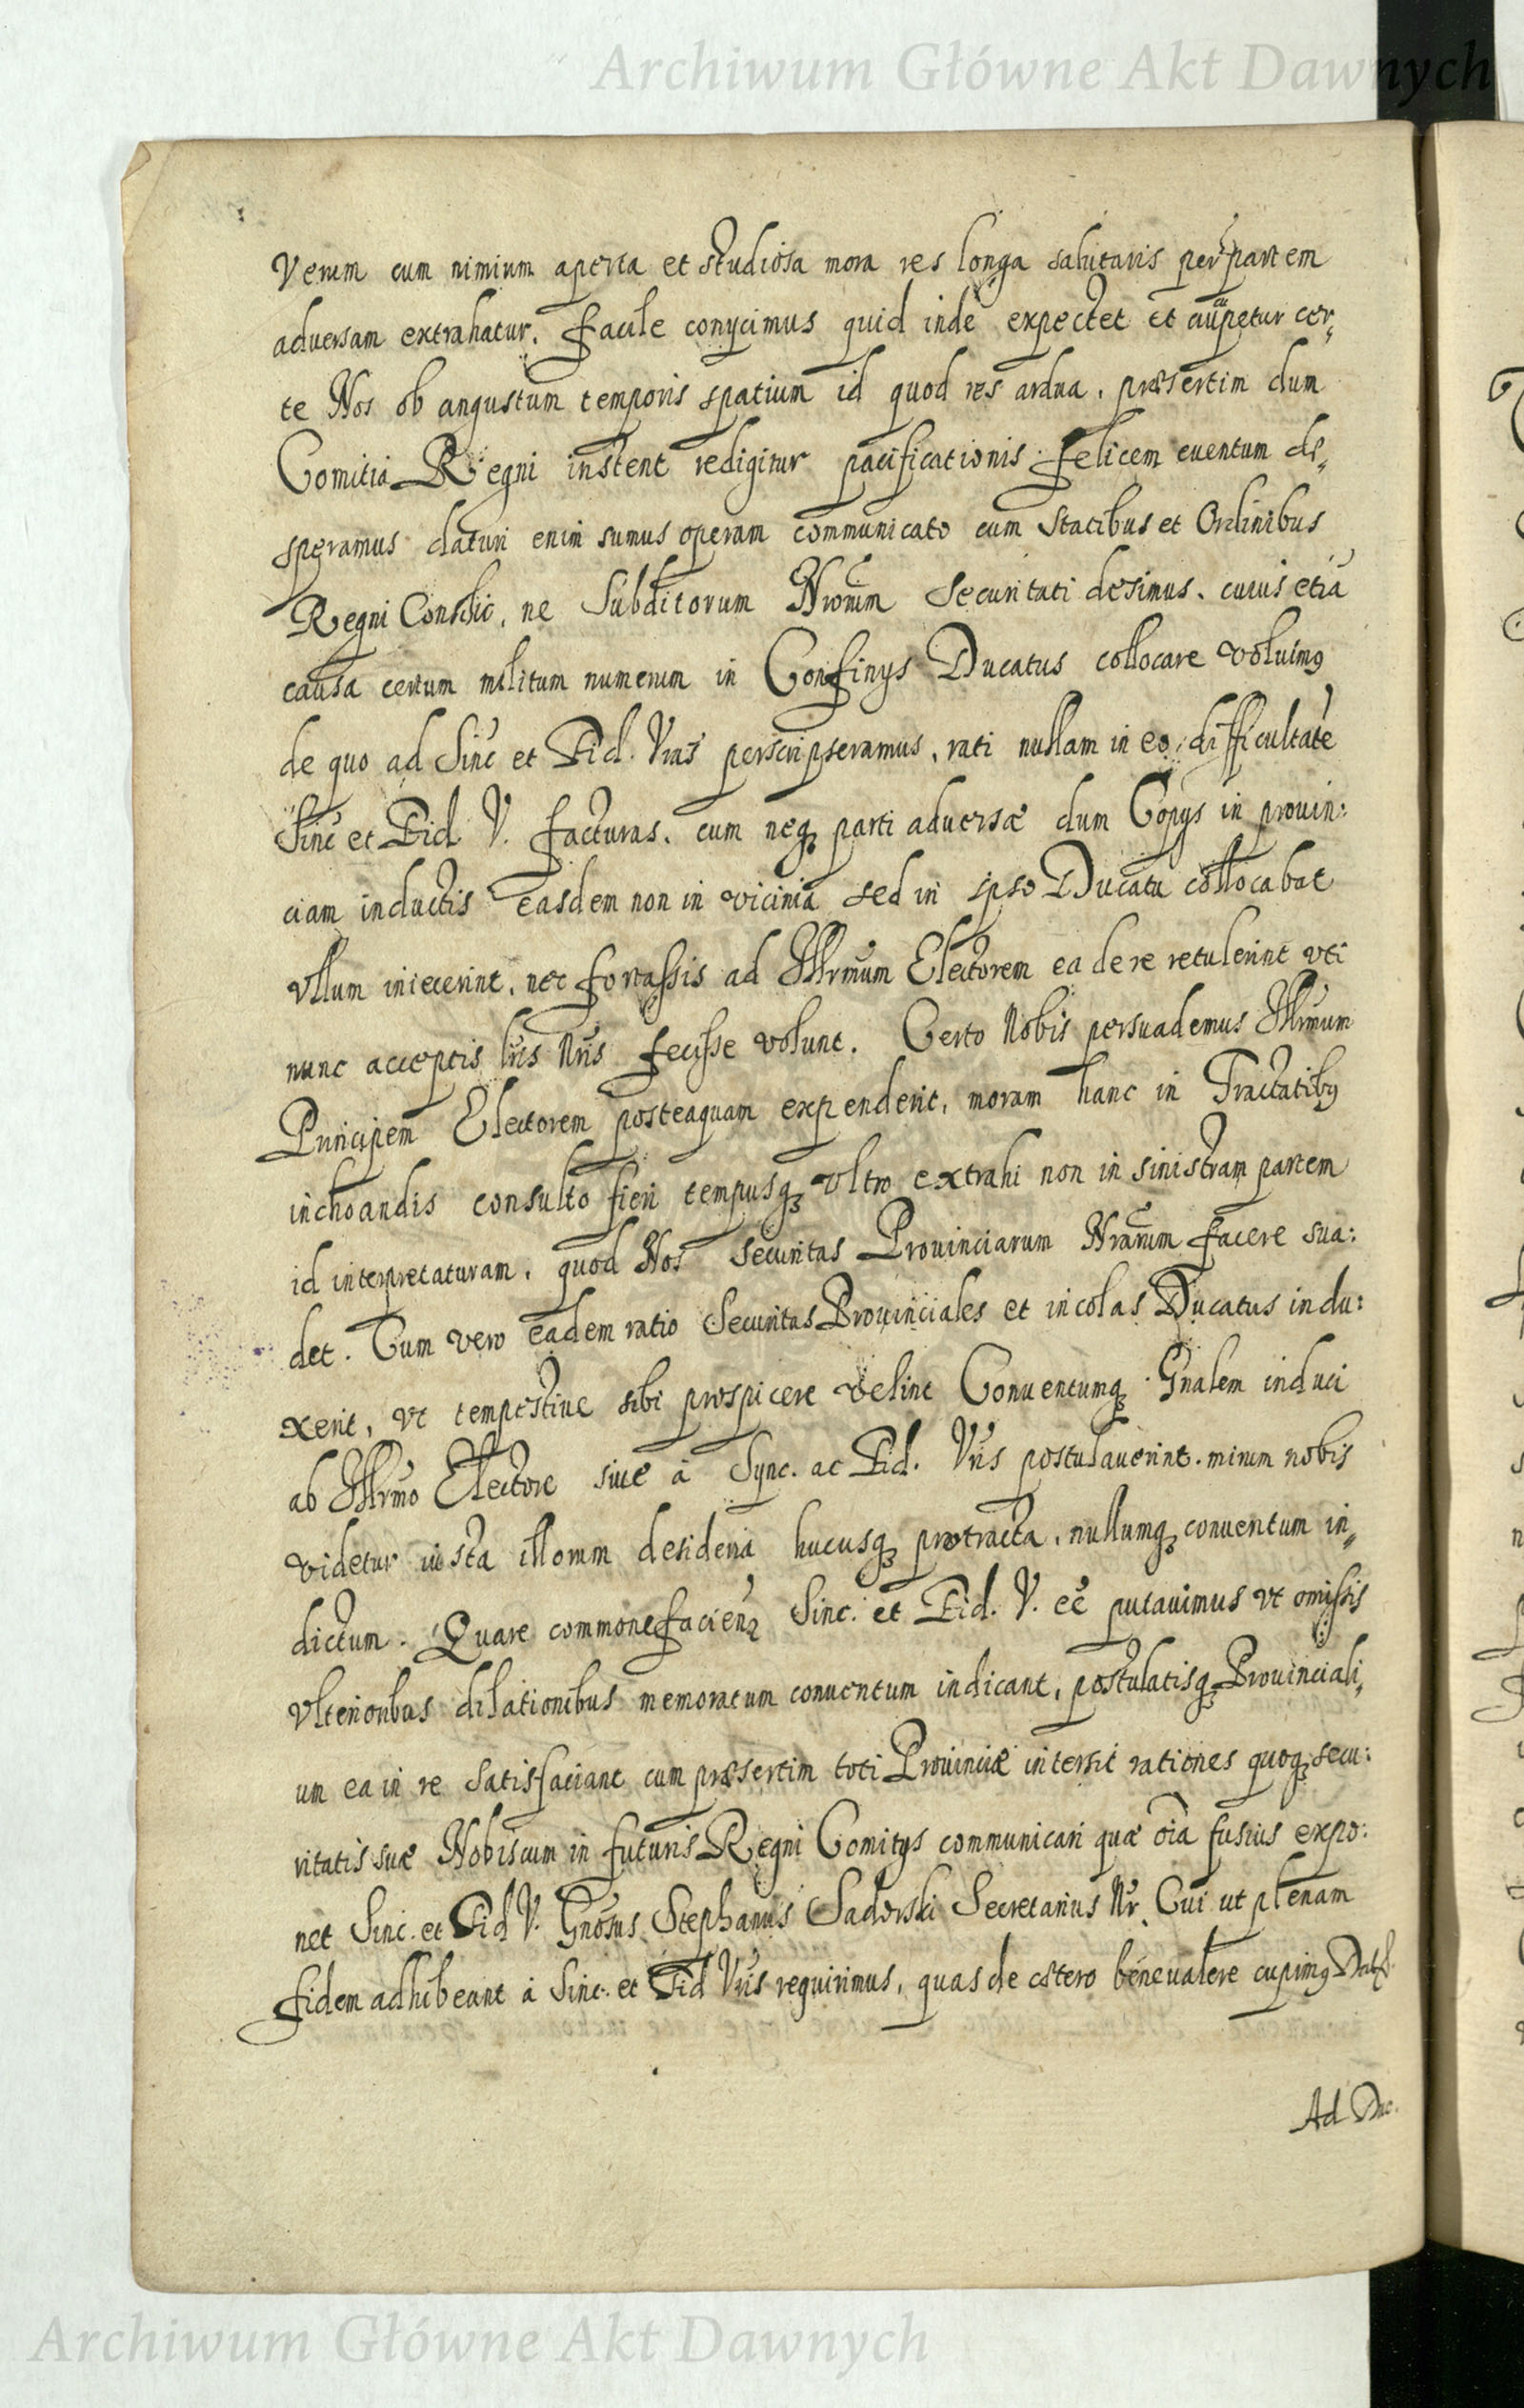 Archiwum Główne Akt Dawnych
Verum cum nimium aperta et studiosa mora res longa salutaris per partem
adversam extrahatur. facile conycimus quid inde expectet et aucupetur cer„
te Nos ob angustum temporis spatium id quod res ardua, præsertim dum
Comitia Regni instent redigitur pacificationis felicem euentum de„
speramus daturi enim sumus operam communicato cum Statibus et Ordinibus
Regni Consilio, ne Subditorum Nrorum Securitati desimus. cuius etiā
causa certum militum numerum in Confinys Ducatus collocare voluimꝰ
de quo ad Sinc et Fid. Vras perscripseramus, rati nullam in eo difficultatē
Sinc et Fid V. facturas. cum neqꝫ parti adversæ dum Copys in prouin:
ciam inductis easdem non in vicinia sed in ipso Ducatu collocabat
vllum iniecerint, nec fortassis ad Illrmum Electorem ea de re retulerint vti
nunc acceptis lris Nris fecisse volunt. Certo Nobis persuademus Illrmum
Principem Electorem posteaquam expenderit, moram hanc in Tractatibꝰ
inchoandis consulto fieri tempusqꝫ vltro extrahi non in sinistram partem
id interpretaturam, quod Nos Securitas Prouinciarum Nrarum facere sua:
det. Cum vero eadem ratio Securitas Prouinciales et incolas Ducatus indu:
xerit, vt tempestiue sibi prospicere velint Conuentumqꝫ Gnalem induci
ab Illrmo Electore siue à Sync. ac Fid. Vris postulauerint. mirum nobis
videtur iusta illorum desideria hucusqꝫ protracta, nullumqꝫ conuentum in„
dictum. Quare commonefaciendꝫ Sinc. et Fid. V. eē putauimus vt omissis
vlterioribus dilationibus memoratum conuentum indicant, postulatisqꝫ Prouinciali„
um ea in re satisfaciant cum præsertim toti Prouinciæ intersit rationes quoqꝫ secu:
ritatis suæ Nobiscum in futuris Regni Comitys communicari quæ oīa fusius expo:
net Sinc. et Fid V. Gnosus Stephanus Sadorski Secretarius Nr. Cui ut plenam
fidem adhibeant à Sinc. et Fid Vris requirimus, quas de cætero bene valere cupimꝰ Dat
Ad Duc.
Archiwum Główne Akt Dawnych